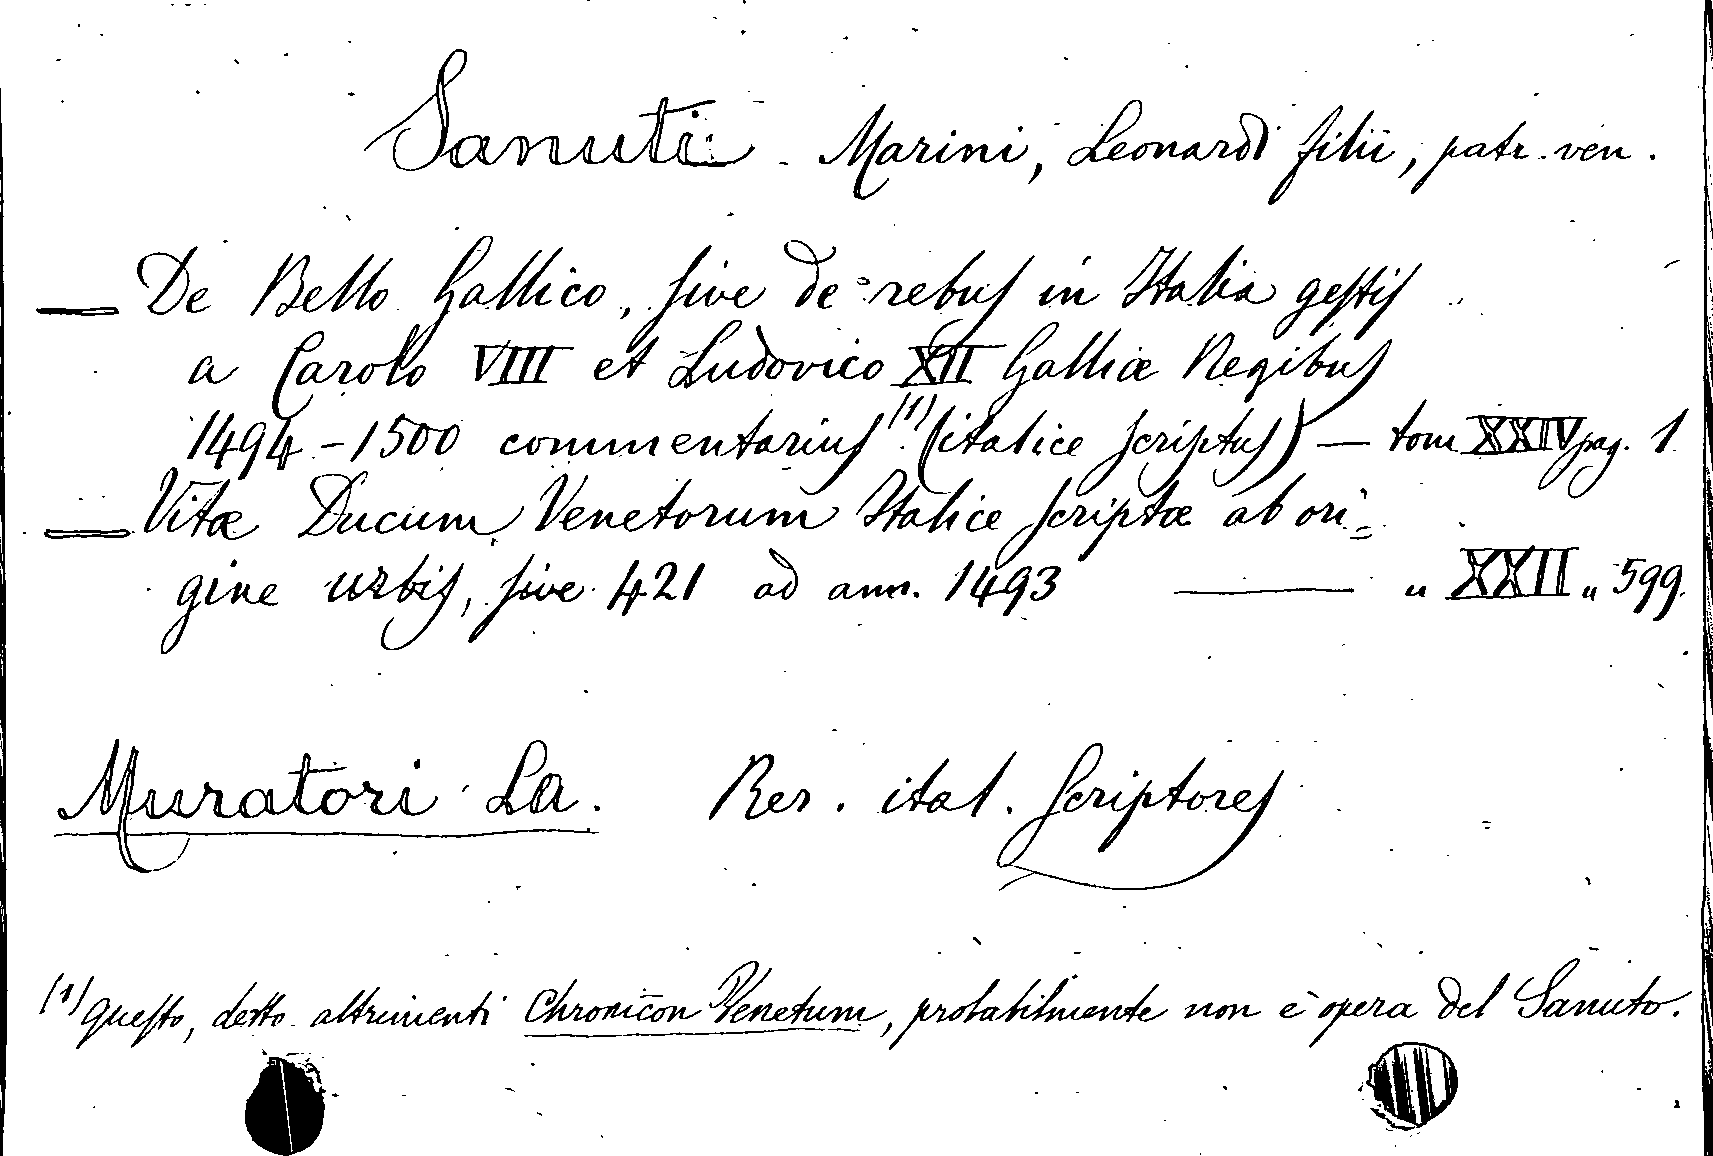 Sanuti - Marini, Leonardi filii, patr. ven.
— De Bello Gallico, sive de rebus in Italia gestis
a Carolo VIII et Ludovico XII Galliæ Regibus
1494-1500 commentarius (1) (italice scriptus) — tom XXIV pag. 1
— Vitæ Ducum Venetorum Italice scriptæ ab ori=
gine urbis, sive 421 ad ann. 1493 — " XXII " 599.
Muratori La. Rer. ital. Scriptores
(1) Questo, detto altrimenti Chronicon Venetum, probabilmente non è opera del Sanuto.